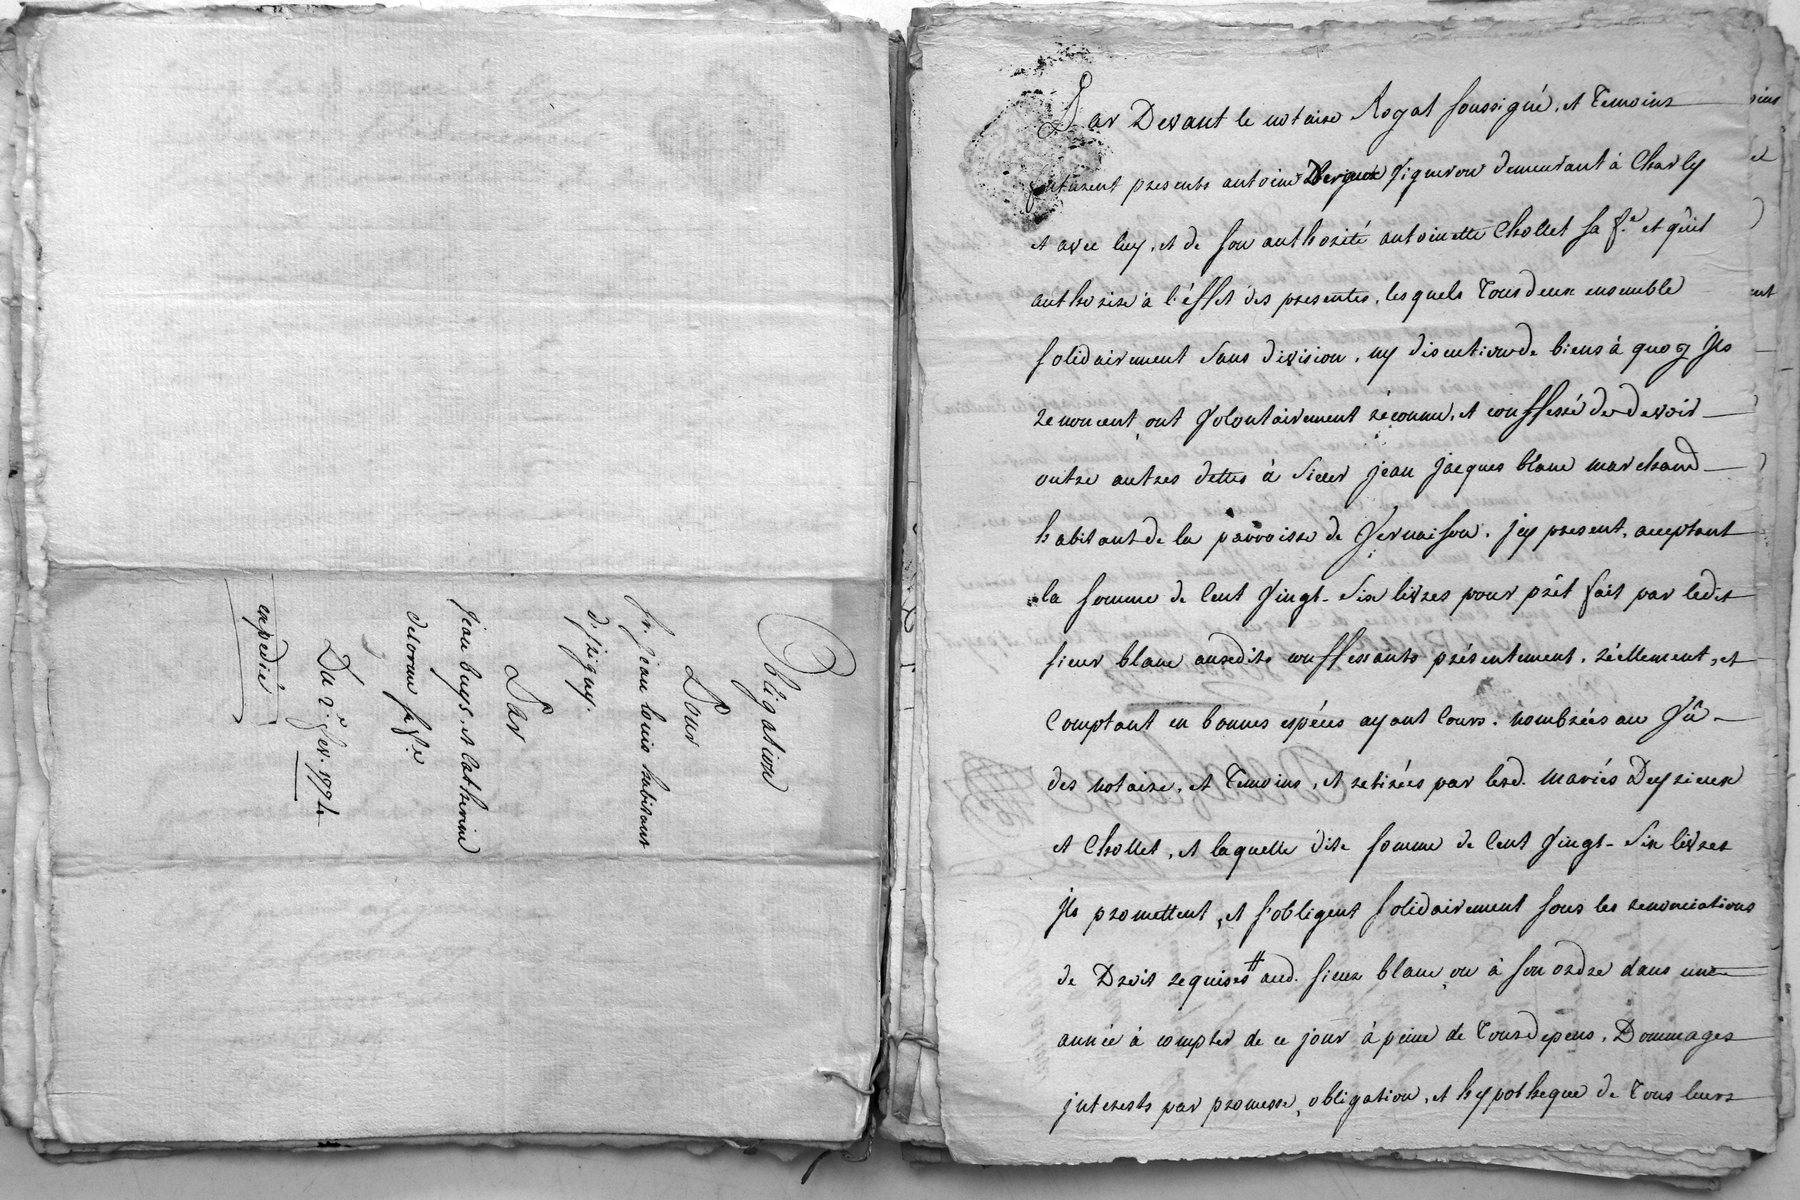 Obligation
Pour
Sr. jean louis habitant
d'jrigny.
Par
jean buys, et Catherine
delorme sa fe.
Du 2e. fev. 1774
expedié
Par Devant le notaire Royal soussigné, et temoins
furent presents antoine vigneron demeurant à Charly
et avec luy, et de son authorité antoinette Chollet sa fe. et qu'il
authorise à l'éffet des presentes, lesquels tous deux ensemble
solidairement sans division, ny discution de biens à quoy jls
renoncent, ont volontairement réconnu, et conffessé de devoir
outre autres dettes à sieur jean jacques blanc marchand
habitant de la parroisse de Vernaison, jcy present, acceptant
la somme de Cent vingt-six livres pour prêt fait par ledit
sieur blanc auxdits conffessants présentement, réellement, et
Comptant en bonnes espéces ayant Cours, nombrées au vû
des notaire, et temoins, et retirées par lesd. mariés Deyrieux
et Chollet, et laquelle dite somme de Cent vingt-six livres
jls promettent, et s'obligent solidairement sous les renonciations
de Droit requises # aud. sieur blanc ou à son ordre dans une
année à compter de ce jour à peine de tous depens, Dommages
jnterests par promesse, obligation, et hypotheque de tous leurs